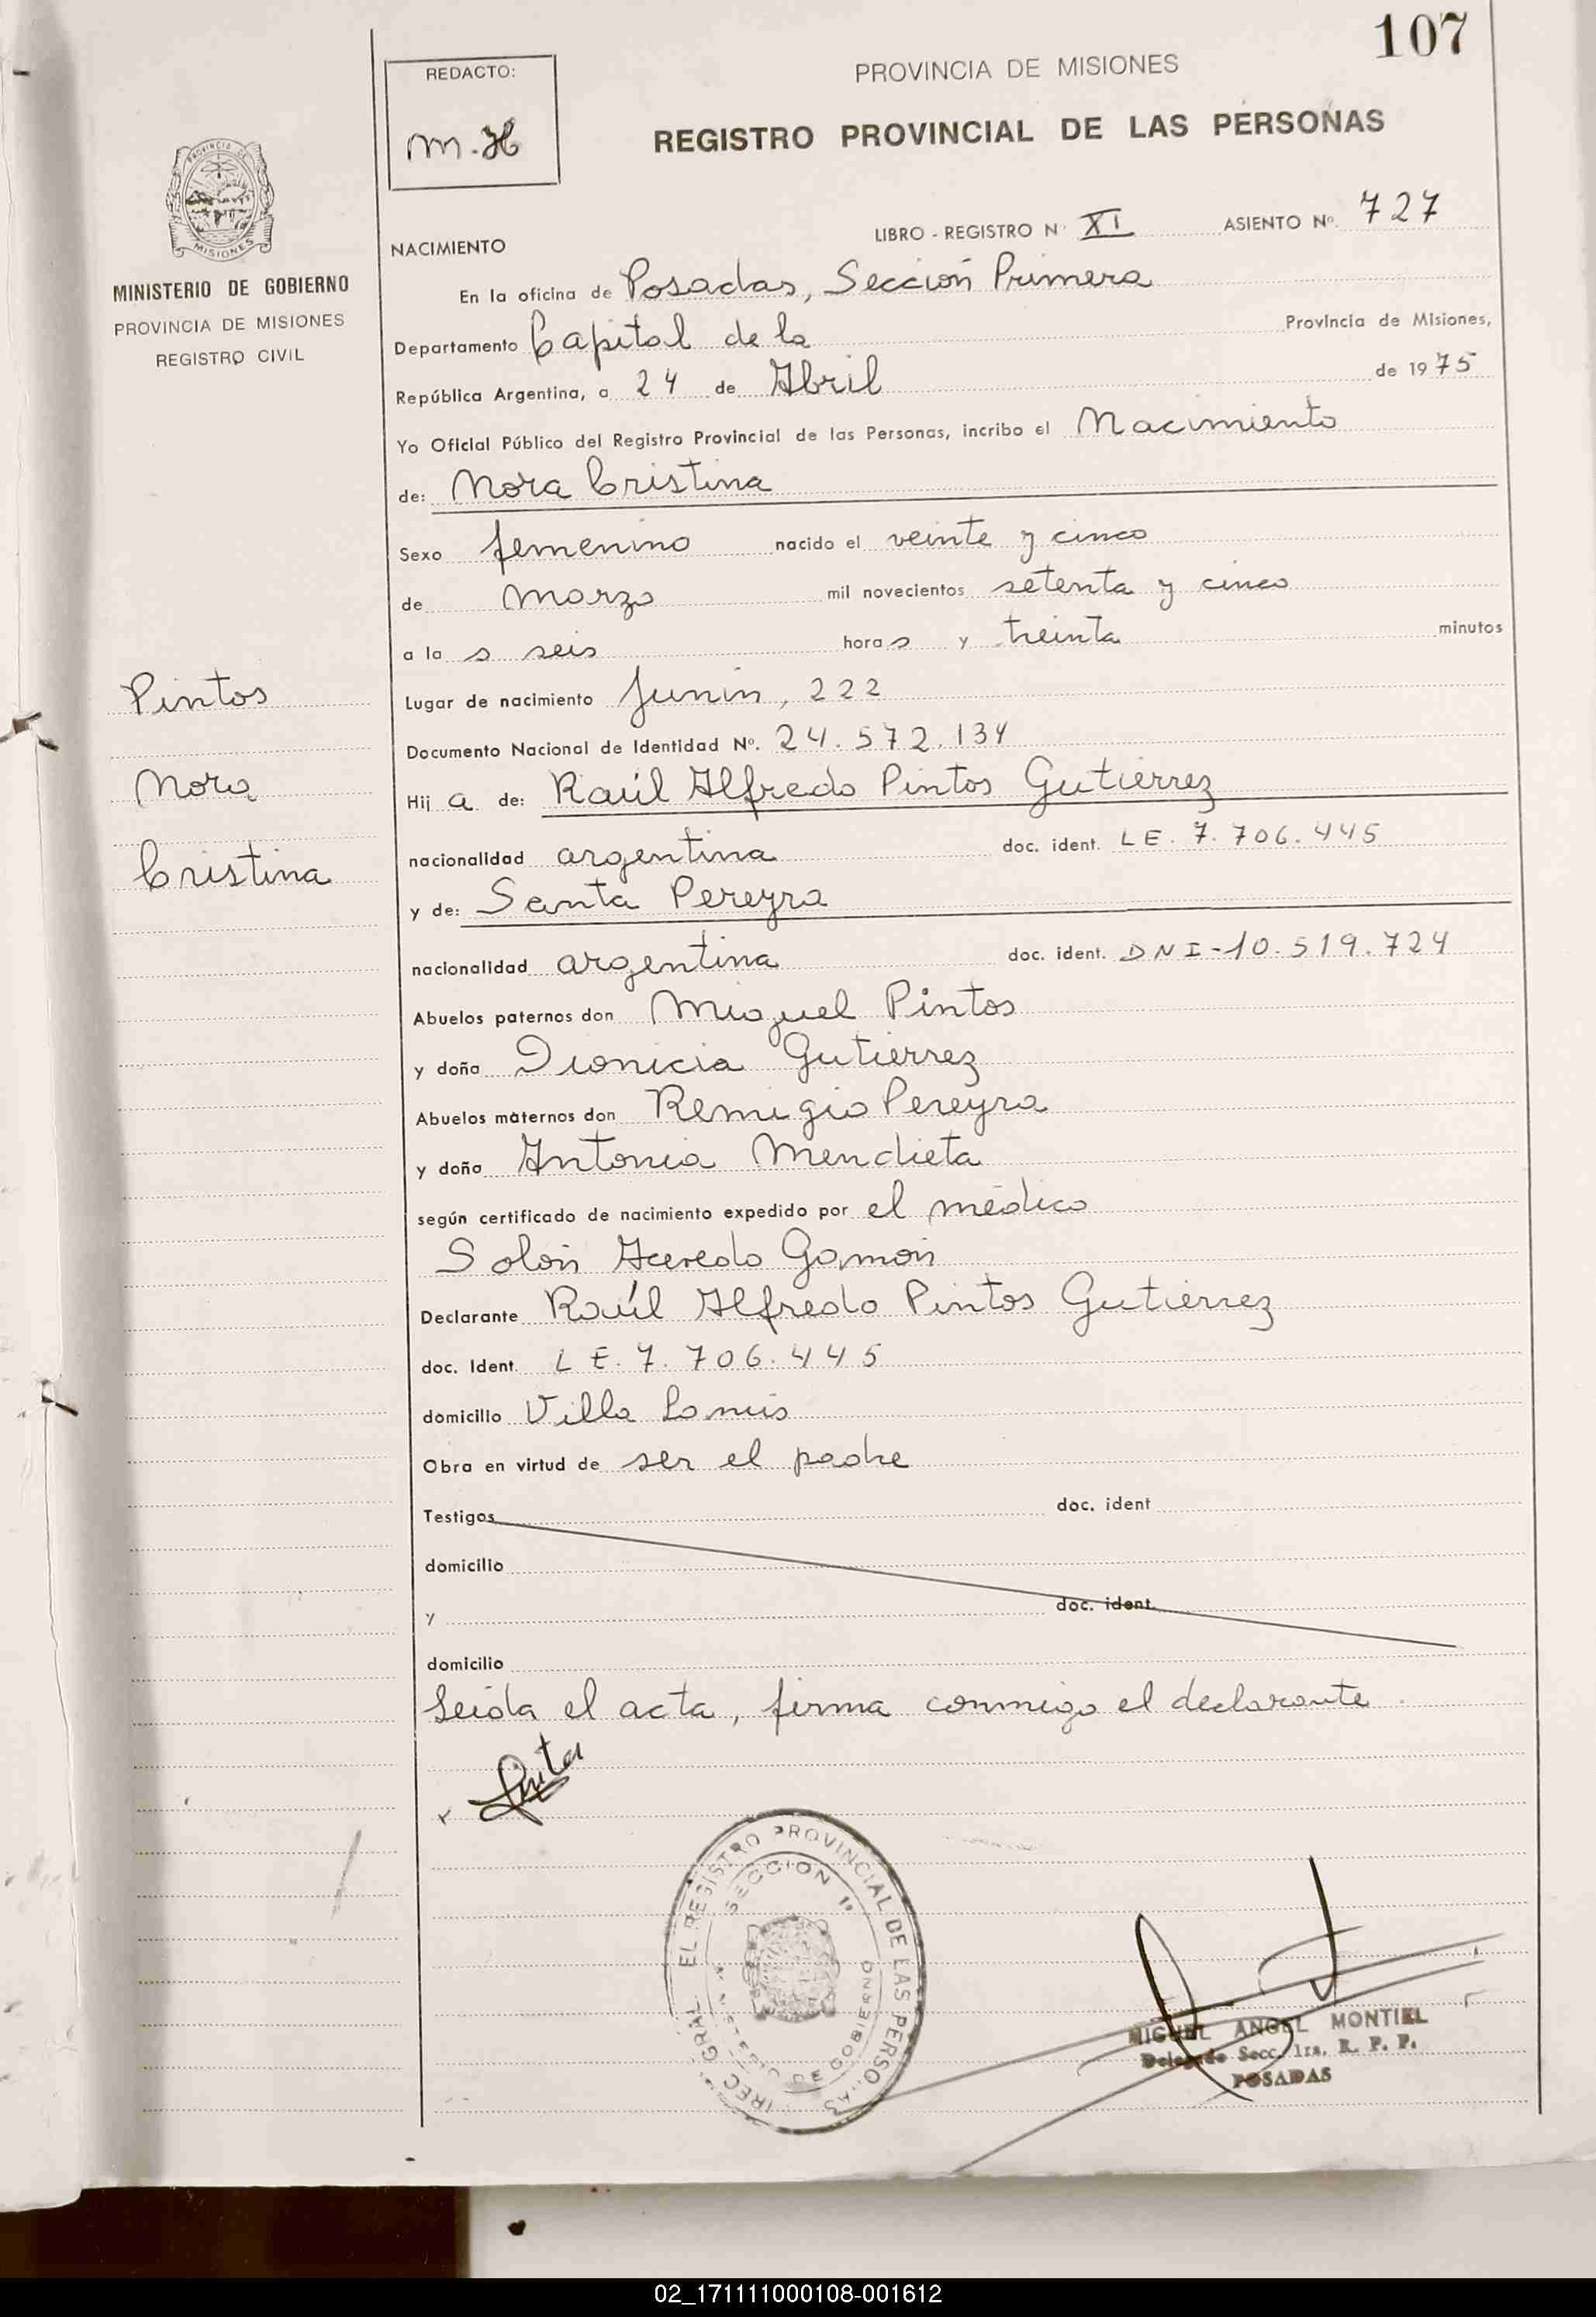 107
REDACTO:
M.H
PROVINCIA DE MISIONES
REGISTRO PROVINCIAL DE LAS PERSONAS
PROVINCIA DE MISIONES
MINISTERIO DE GOBIERNO
PROVINCIA DE MISIONES
REGISTRO CIVIL
NACIMIENTO LIBRO - REGISTRO N° XI ASIENTO Nº. 727
En la oficina de Posadas, Sección Primera
Departamento Capital de la Provincia de Misiones,
República Argentina, a 24 de Abril de 1975
Yo Oficial Público del Registro Provincial de las Personas, incribo el Nacimiento
de: Nora Cristina
Sexo femenino nacido el veinte y cinco
de marzo mil novecientos setenta y cinco
a la s seis hora s y treinta minutos
Lugar de nacimiento Junín, 222
Documento Nacional de Identidad Nº. 24.572.134
Hij a de: Raúl Alfredo Pintos Gutiérrez
nacionalidad argentina doc. ident. LE. 7.706.445
y de: Santa Pereyra
nacionalidad argentina doc. ident. DNI-10.519.724
Abuelos paternos don Miguel Pintos
y doña Dionicia Gutiérrez
Abuelos maternos don Remigio Pereyra
y doña Antonia Mendieta
según certificado de nacimiento expedido por el médico
Solón Acevedo Gamón
Declarante Raúl Alfredo Pintos Gutiérrez
doc. Ident. LE. 7.706.445
domicilio Villa Lanús
Obra en virtud de ser el padre
Testigos doc. ident
domicilio
y doc. ident.
domicilio
Leída el acta, firma conmigo el declarante.
Pintos
Nora
Cristina
EL REGISTRO PROVINCIAL DE LAS PERSONAS
SECCION 1ª
DE GOBIERNO
MIGUEL ANGEL MONTIEL
Delegado Secc. 1ra. R. P. P.
POSADAS
02_171111000108-001612